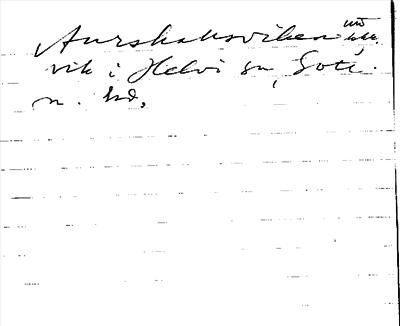 Aurskaksviken
vik i Helvi sn, Gotl.
n. hd.